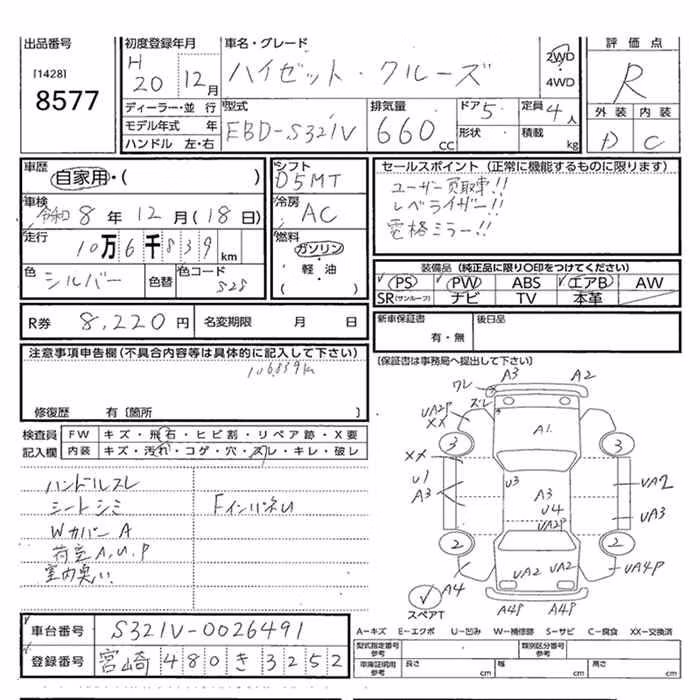 出品番号
[1428]
8577
初度登録年月
H 20年 12月
車名・グレード
ハイゼット・クルーズ
2WD
・4WD
評価点
R
外装 内装
D C
ディーラー・並行
モデル年式 年
ハンドル 左・右
型式
EBD-S321V
排気量
660 CC
ドア 5
形状
定員 4人
積載 kg
車歴
自家用・( )
車検
令和8年12月(18日)
走行
10万6千839km
色
シルバー
色替
色コード
S28
シフト
D5MT
冷房
AC
燃料
ガソリン
・軽・油
( )
セールスポイント(正常に機能するものに限ります)
ユーザー買取車!!
レベライザー!!
電格ミラー!!
装備品(純正品に限り○印をつけてください)
PS PW ABS エアB AW
SR(サンルーフ) ナビ TV 本革
R券 8,220円 名変期限 月 日
新車保証書
有・無
後日品
注意事項申告欄(不具合内容等は具体的に記入して下さい)
106,839km
修復歴 有〔箇所 〕
[保証書は事務局へ提出して下さい]
検査員
記入欄
FW キズ・飛石・ヒビ割・リペア跡・X要
内装 キズ・汚れ・コゲ・穴・スレ・キレ・破レ
ハンドルスレ
シートシミ
FインパネU
Wカバー A
荷室A,U,P
室内臭い
ワレ A3 A2
ズレ
UA2P
XX
A1
3 3
XX
U1
A3
U3
A3
U4
UA2P
UA2
UA3
2 2
UA2 UA2
A4
UA4P
A4P A4P
スペアT
A-キズ E-エクボ U-凹み W-補修跡 S-サビ C-腐食 XX-交換済
車台番号 S321V-0026491
登録番号 宮崎 480 き 3252
型式指定番号
参考
類別区分番号
参考
車庫証明用
参考
長さ cm 幅 cm 高さ cm